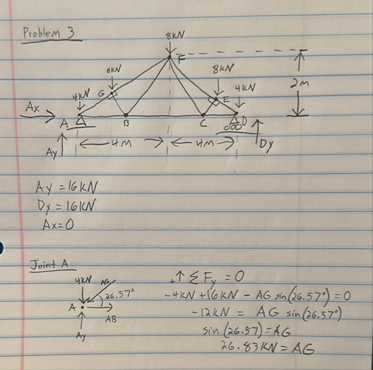 Problem 3
8kN
F
8kN
8kN
G
E
4kN
4kN
2m
Ax
A
B
C
D
4m
4m
Ay
Dy
Ay = 16kN
Dy = 16kN
Ax = 0
Joint A
4kN
AG
26.57°
A
AB
Ay
+↑ΣFy = 0
-4kN + 16kN - AG sin(26.57°) = 0
-12kN = AG sin(26.57°)
sin(26.57) = AG
26.83kN = AG